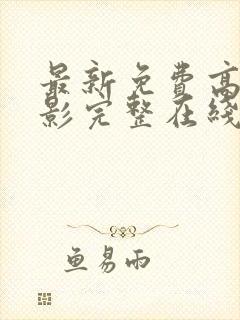 最新免费高
影完整在线
鱼易雨